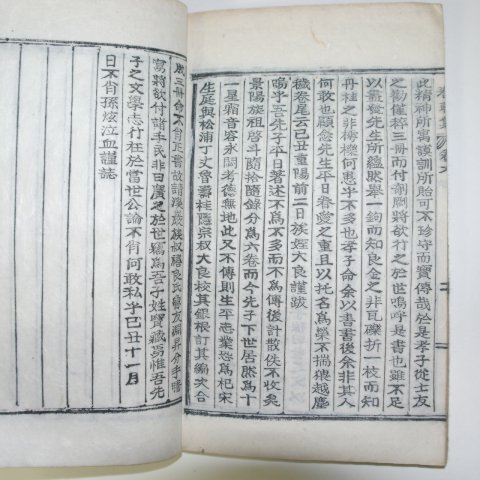 此精神所寓謨訓所貽可不珍守而寶傳哉於是孝子從士友
之勸僅釋三冊而付剞劂將欲行之於世嗚呼是書也雖不足
以盡發先生所蘊然擧一鉤而知良金之非瓦礫折一枝而知
丹桂之非樗櫟何患乎不多也孝子命余以書書後余非其人
何敢也顧念先生平日眷愛之重且以托名爲榮不揣猥越塵
穢卷尾云已丑重陽前二日族姪大良謹跋
嗚乎吾先子平日著述不爲不多而不爲傳後計散佚不收矣
景陽族祖啓斗隨拾隨錄分爲六卷而今先子下世居然爲十
一星霜音容永閟考德無地此又不傳則生平志業恐爲杞宋
生庭與松浦丁丈晉壽桂隱宗叔大良校其銀根訂其編次合
爲三冊命不肖正書故請溪 族叔 良氏 友淵昇分手謄
寫將欲付諸手民非曰廣之於世寫爲吾子姓寶藏焉惟吾先
子之文學志行在於當世公論不肖何敢私乎己丑十一月
日不肖孫炫泣血謹誌